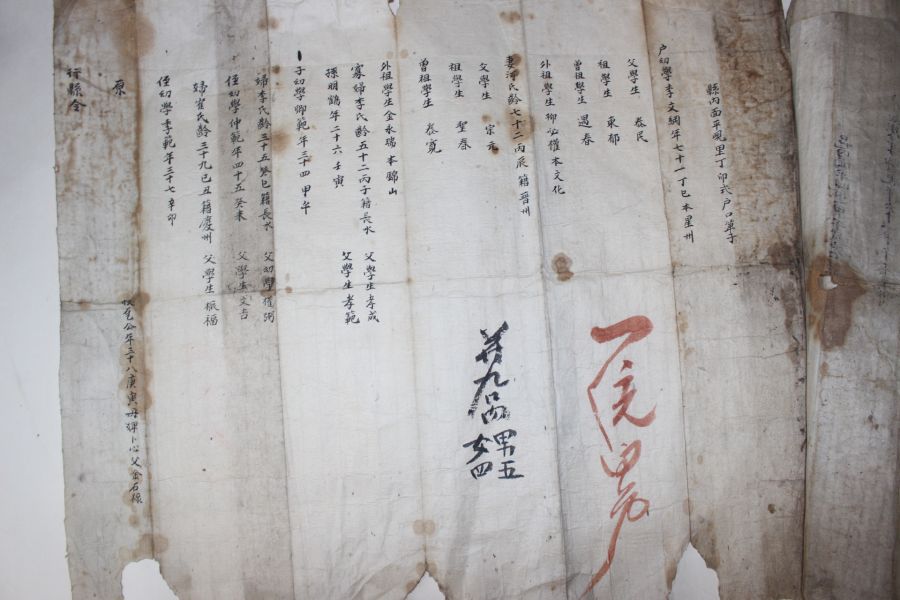 縣丙面平風里丁卯式戶口單子
戶幼學李文綱年七十一丁巳本星州
父學生 泰民
祖學生 東郁
曾祖學生 遇春
外祖學生柳必權本文化
妻河氏齡七十二丙辰籍晉州
父學生 宗元
祖學生 聖春
曾祖學生 泰寬
外祖學生金永瑞本錦山
寡婦李氏齡五十二丙子籍長水 父學生孝成
孫明鶴年二十六壬寅 父學生孝範
子幼學卿範年三十四甲午
婦李氏齡三十五癸巳籍長水 父幼學權弼
侄幼學仲範年四十五癸未 父學生文吉
婦崔氏齡三十九己丑籍慶州 父學生振福
侄幼學季範年三十七辛卯
原
行縣令
年三十八庚寅 父金石
九口內 男五
女四